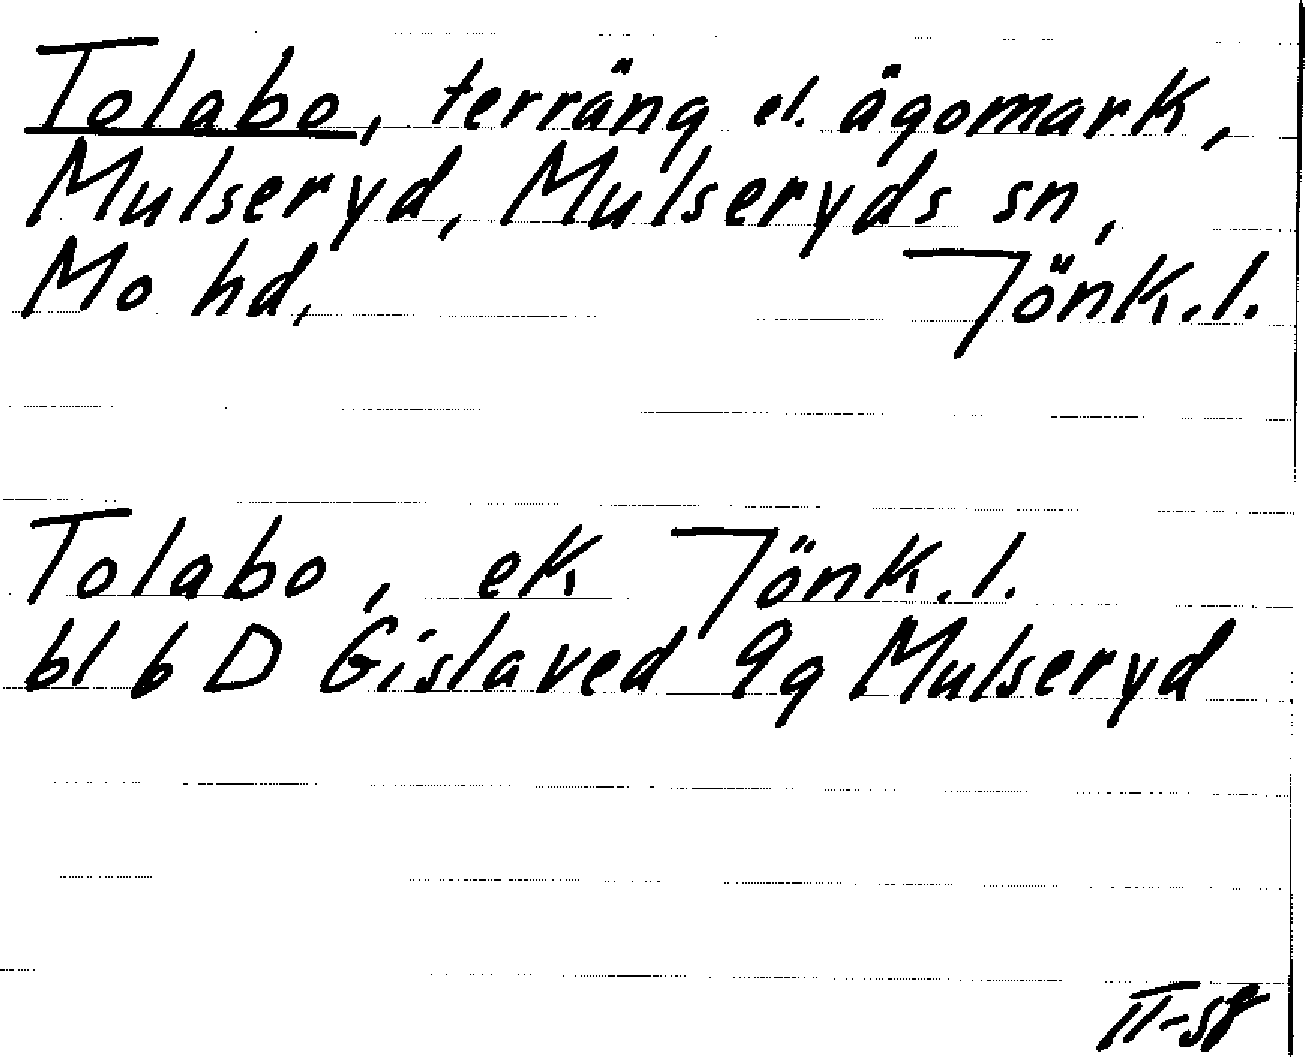 Tolabo, terräng el. ägomark,
Mulseryd, Mulseryds sn,
Mo hd, Jönk. l.
Tolabo, ek Jönk. l.
bl 6 D Gislaved 9g Mulseryd
II-58